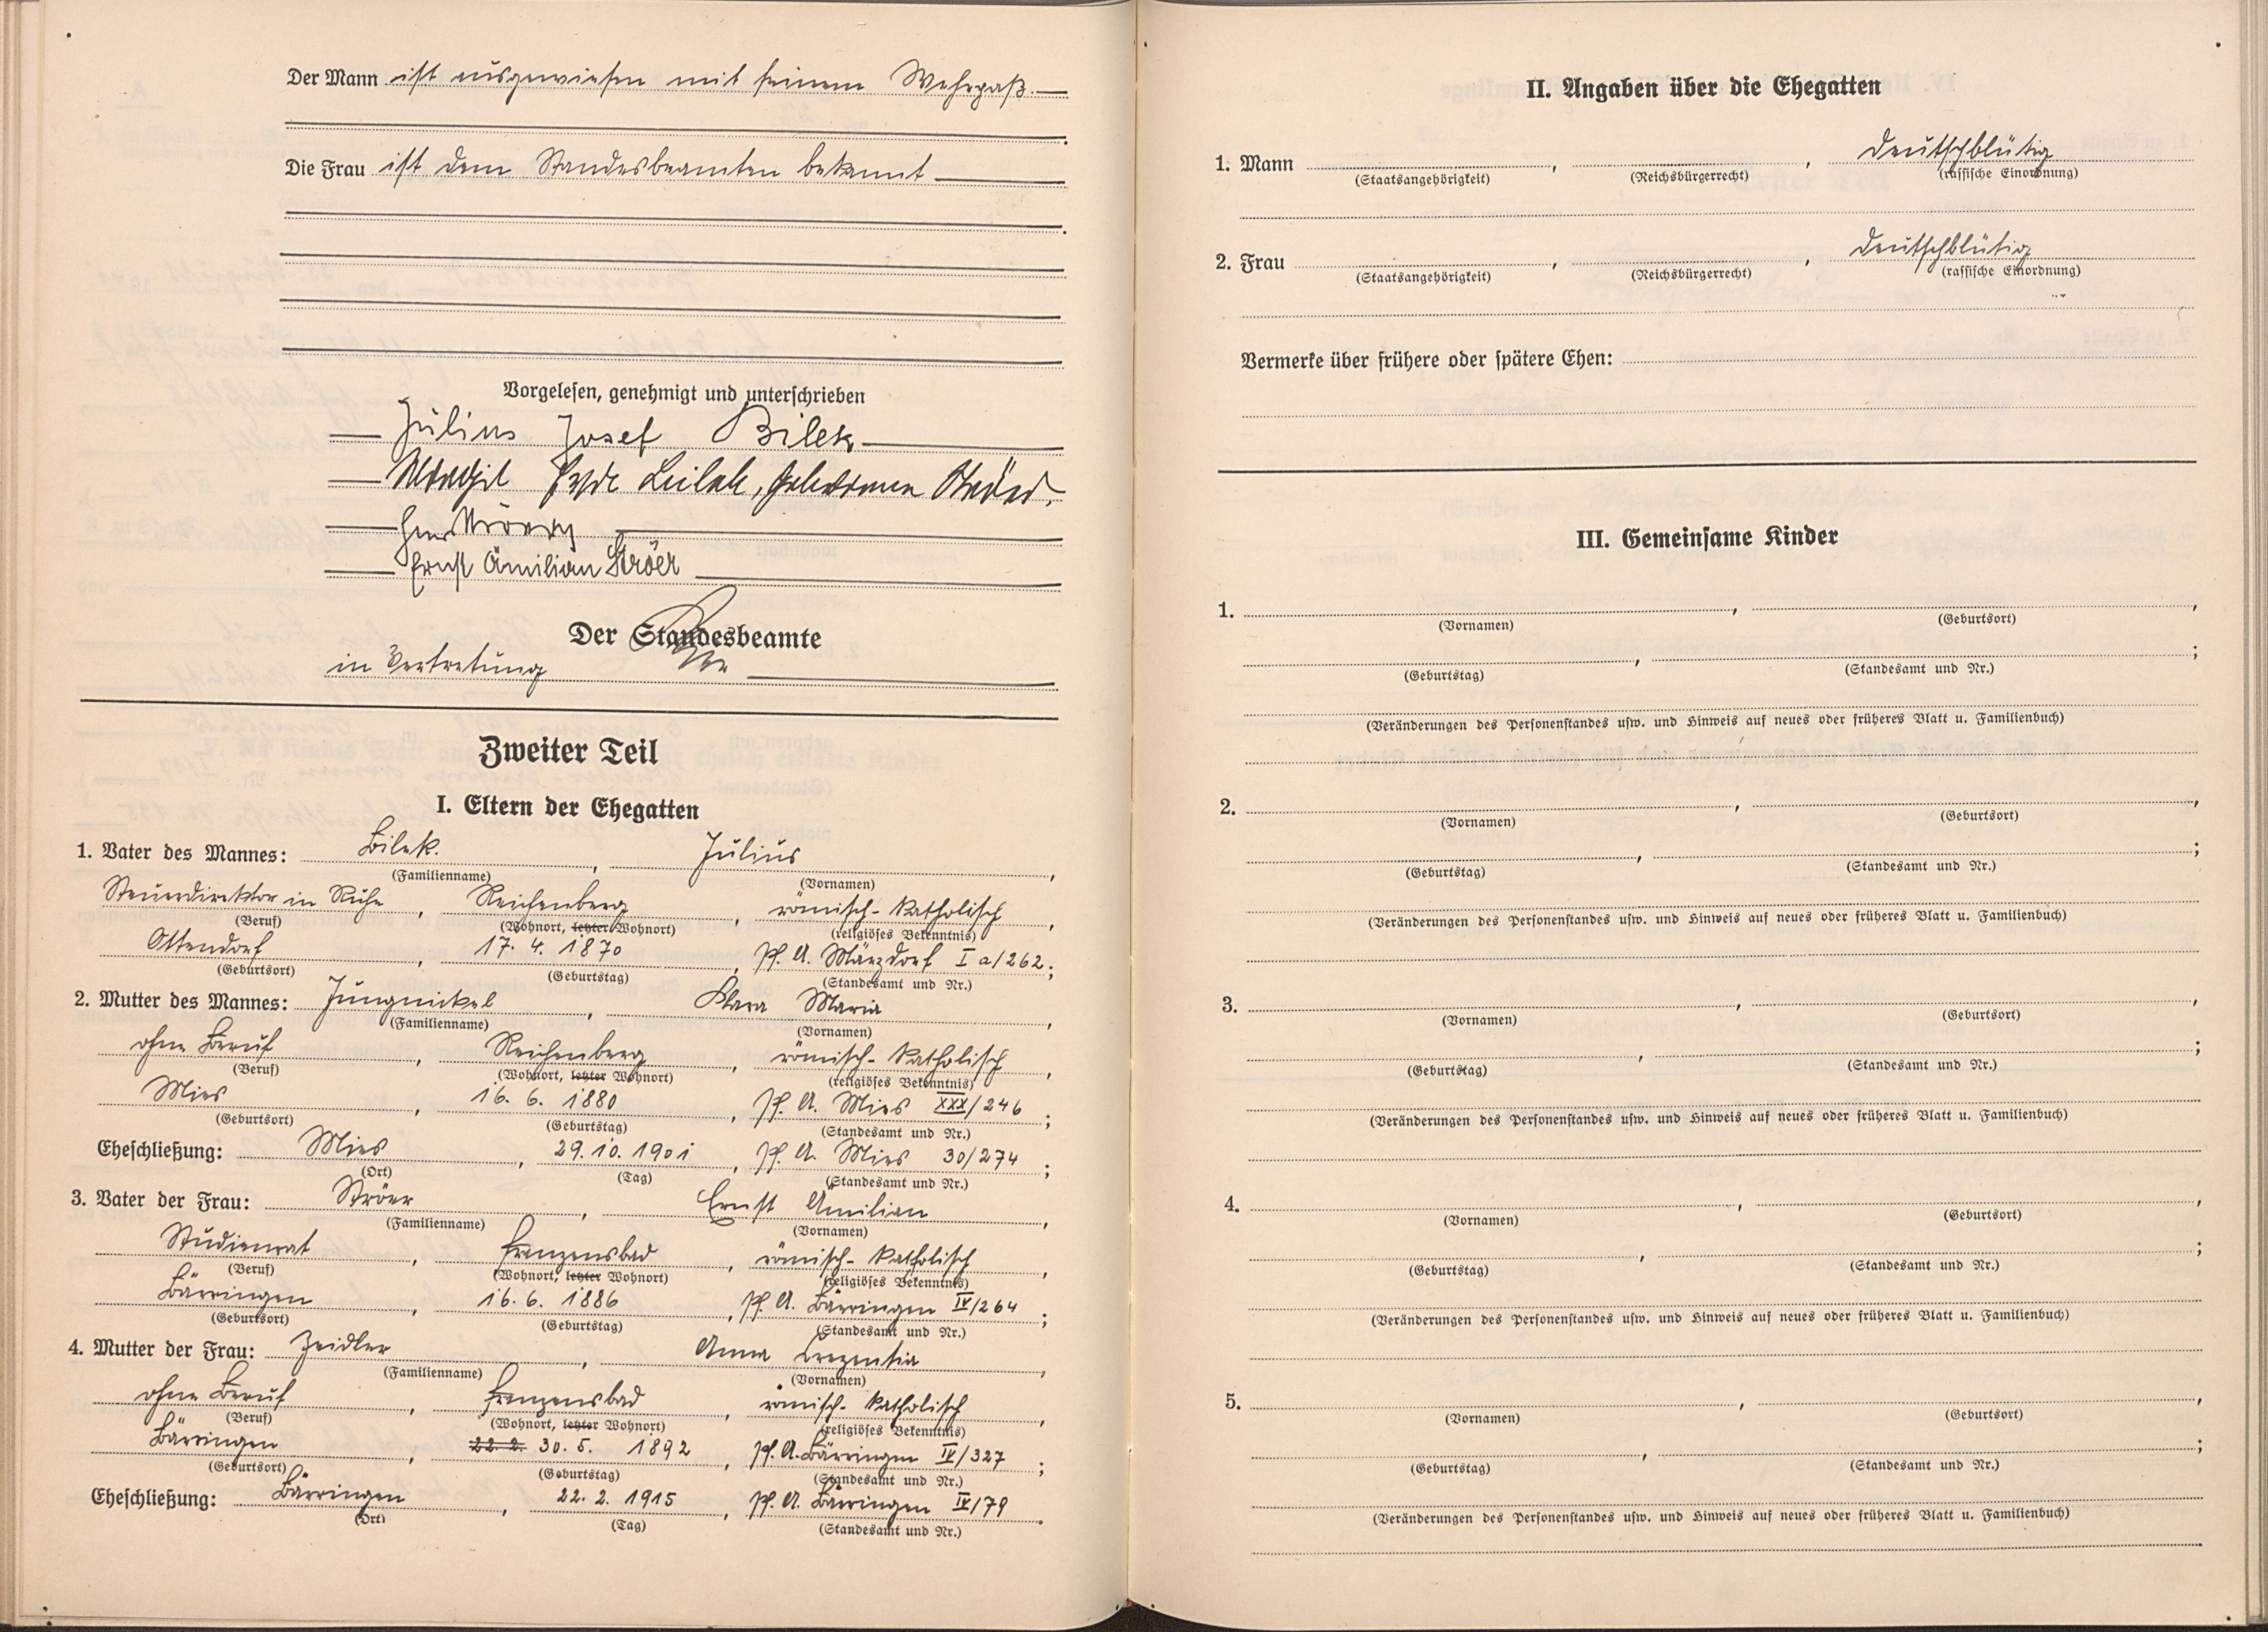 Der Mann ist ausgewiesen mit seinem Wehrpaß.
Die Frau ist dem Standesbeamten bekannt
Vorgelesen, genehmigt und unterschrieben
Julius Josef Bilek
Bilek, geborenen Ströer.
Ernst Ämilian Ströer
Der Standesbeamte
in Vertretung
Zweiter Teil
I. Eltern der Ehegatten
1. Vater des Mannes: Bilek. , Julius ,
(Familienname) (Vornamen)
Steuerdirektor in Ruhe , Reichenberg , römisch-katholisch ,
(Beruf) (Wohnort, letzter Wohnort) (religiöses Bekenntnis)
Ottendorf , 17. 4. 1870 , Pf. A. Märzdorf I a/262 ;
(Geburtsort) (Geburtstag) (Standesamt und Nr.)
2. Mutter des Mannes: Jungnickel , Klara Maria ,
(Familienname) (Vornamen)
ohne Beruf , Reichenberg , römisch-katholisch ,
(Beruf) (Wohnort, letzter Wohnort) (religiöses Bekenntnis)
Mies , 16. 6. 1880 , Pf. A. Mies XXX/246 ;
(Geburtsort) (Geburtstag) (Standesamt und Nr.)
Eheschließung: Mies , 29. 10. 1901 , Pf. A. Mies 30/274 ;
(Ort) (Tag) (Standesamt und Nr.)
3. Vater der Frau: Ströer , Ernst Ämilian ,
(Familienname) (Vornamen)
Studienrat , Franzensbad , römisch-katholisch ,
(Beruf) (Wohnort, letzter Wohnort) (religiöses Bekenntnis)
Bärringen , 16. 6. 1886 , Pf. A. Bärringen IV/264 ;
(Geburtsort) (Geburtstag) (Standesamt und Nr.)
4. Mutter der Frau: Zeidler , Anna Crezentia ,
(Familienname) (Vornamen)
ohne Beruf , Franzensbad , römisch-katholisch ,
(Beruf) (Wohnort, letzter Wohnort) (religiöses Bekenntnis)
Bärringen , 22. 2. 30. 5. 1892 , Pf. A. Bärringen IV/327 ;
(Geburtsort) (Geburtstag) (Standesamt und Nr.)
Eheschließung: Bärringen , 22. 2. 1915 , Pf. A. Bärringen IV/79 .
(Ort) (Tag) (Standesamt und Nr.)
II. Angaben über die Ehegatten
1. Mann , , deutschblütig
(Staatsangehörigkeit) (Reichsbürgerrecht) (rassische Einordnung)
2. Frau , , deutschblütig
(Staatsangehörigkeit) (Reichsbürgerrecht) (rassische Einordnung)
Vermerke über frühere oder spätere Ehen:
III. Gemeinsame Kinder
1. , ,
(Vornamen) (Geburtsort)
, ;
(Geburtstag) (Standesamt und Nr.)
(Veränderungen des Personenstandes usw. und Hinweis auf neues oder früheres Blatt u. Familienbuch)
2. , ,
(Vornamen) (Geburtsort)
, ;
(Geburtstag) (Standesamt und Nr.)
(Veränderungen des Personenstandes usw. und Hinweis auf neues oder früheres Blatt u. Familienbuch)
3. , ,
(Vornamen) (Geburtsort)
, ;
(Geburtstag) (Standesamt und Nr.)
(Veränderungen des Personenstandes usw. und Hinweis auf neues oder früheres Blatt u. Familienbuch)
4. , ,
(Vornamen) (Geburtsort)
, ;
(Geburtstag) (Standesamt und Nr.)
(Veränderungen des Personenstandes usw. und Hinweis auf neues oder früheres Blatt u. Familienbuch)
5. , ,
(Vornamen) (Geburtsort)
, ;
(Geburtstag) (Standesamt und Nr.)
(Veränderungen des Personenstandes usw. und Hinweis auf neues oder früheres Blatt u. Familienbuch)